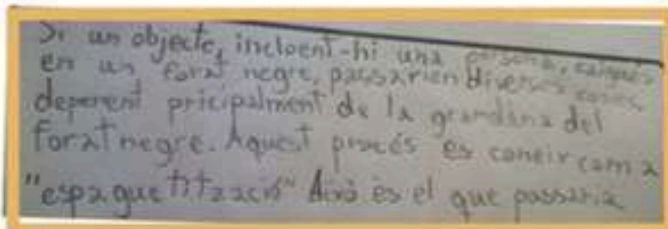 Si un objecte, incloent-hi una persona, caigués
en un forat negre, passarien diverses coses
depenent pricipalment de la grandària del
forat negre. Aquest procés es coneix com a
"espaguetització" Això és el que passaria